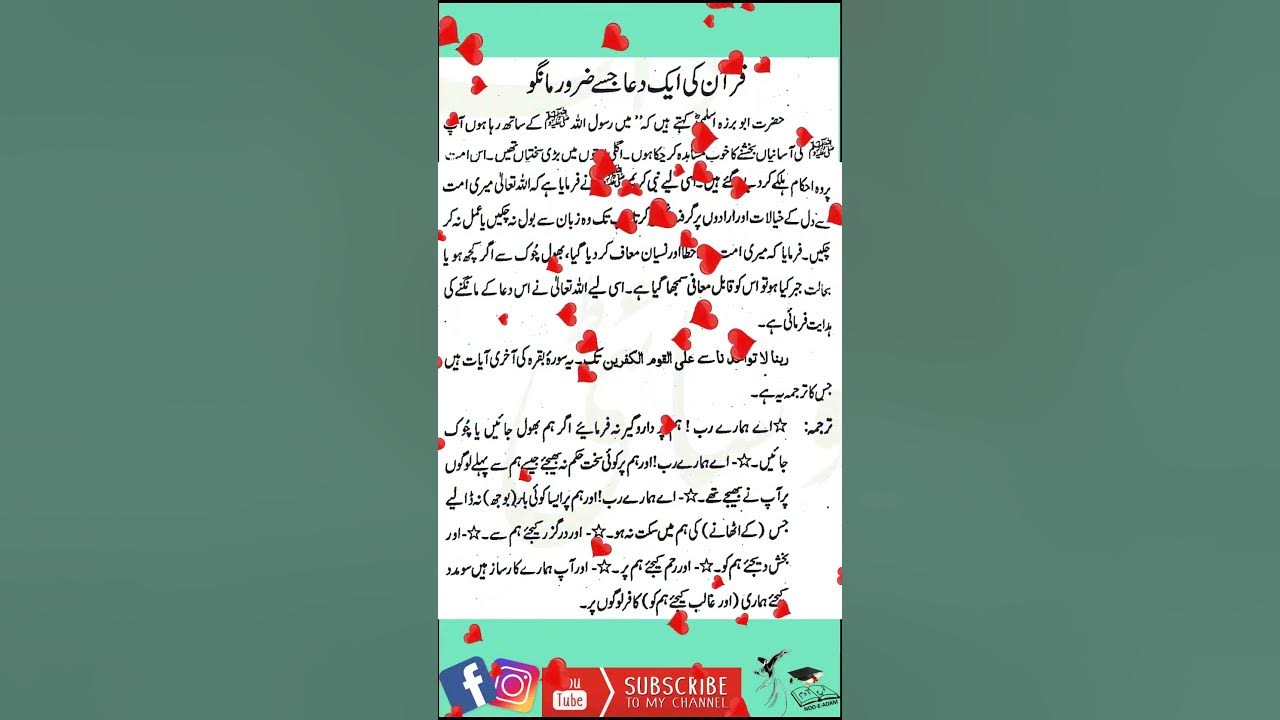 قرآن کی ایک دعا جسے ضرور مانگو
حضرت ابو برزہ اسلمیؓ کہتے ہیں کہ ’’میں رسول اللہ ﷺ کے ساتھ رہا ہوں آپ
ﷺ کی آسانیاں بخشنے کا خوب مشاہدہ کر چکا ہوں۔ اگلی میں بڑی سختیاں تھیں۔ اس امت
پر وہ احکام ہلکے کر دیے گئے ہیں۔ اسی لیے نبی کریم ﷺ نے فرمایا ہے کہ اللہ تعالیٰ میری امت
سے دل کے خیالات اور ارادوں پر کرتا تک وہ زبان سے بول نہ چکیں یا عمل نہ کر
چکیں۔ فرمایا کہ میری امت خطا اور نسیان معاف کر دیا گیا، بھول چُوک سے اگر کچھ ہو یا
بحالت جبر کیا ہو تو اس کو قابل معافی سمجھا گیا ہے۔ اسی لیے اللہ تعالیٰ نے اس دعا کے مانگنے کی
ہدایت فرمائی ہے۔
ربنا لا ناسے علی القوم الکفرین تک۔ یہ سورۂ بقرہ کی آخری آیات ہیں
جس کا ترجمہ یہ ہے۔
ترجمہ: ☆اے ہمارے رب! ہم پر داروگیر نہ فرمائیے اگر ہم بھول جائیں یا چُوک
جائیں۔☆- اے ہمارے رب! اور ہم پر کوئی سخت حکم نہ بھیجئے جیسے ہم سے پہلے لوگوں
پر آپ نے بھیجے تھے۔☆- اے ہمارے رب! اور ہم پر ایسا کوئی بار (بوجھ) نہ ڈالیے
جس (کے اٹھانے) کی ہم میں سکت نہ ہو۔☆- اور درگزر کیجئے ہم سے۔☆- اور
بخش دیجئے ہم کو۔☆- اور رحم کیجئے ہم پر۔☆- اور آپ ہمارے کارساز ہیں سو مدد
کیجئے ہماری (اور غالب کیجئے ہم کو) کافر لوگوں پر۔
You Tube
SUBSCRIBE
TO MY CHANNEL
NOO-E-ADAM